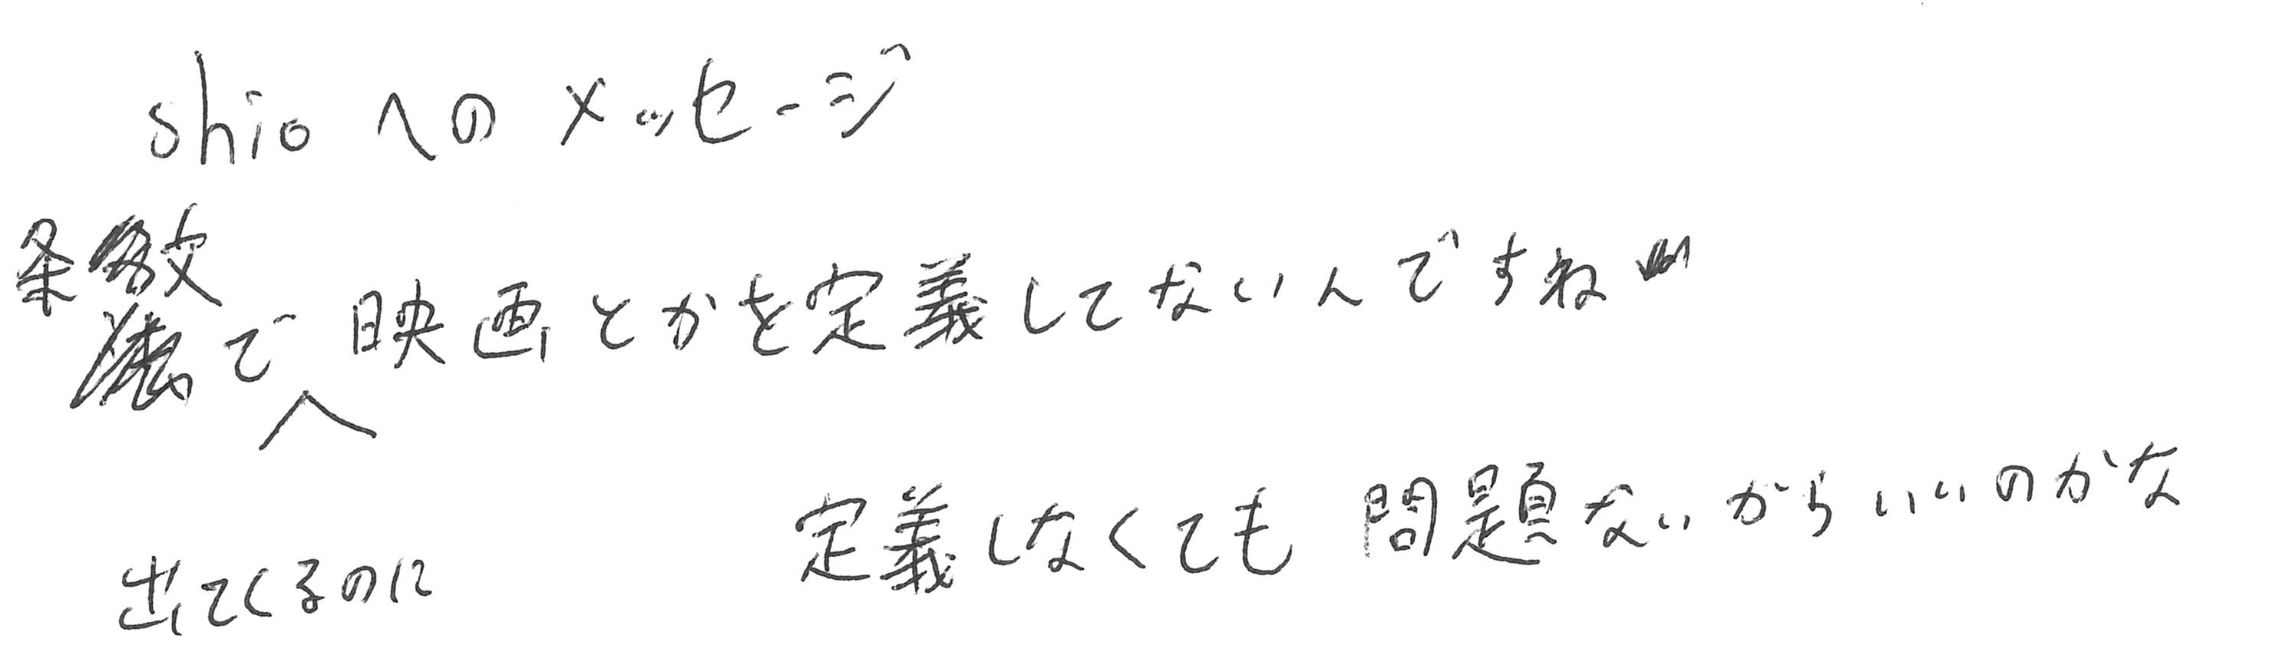 shioへのメッセージ
条文
で映画とかを定義してないんですね
出てくるのに
定義しなくても問題ないからいいのかな